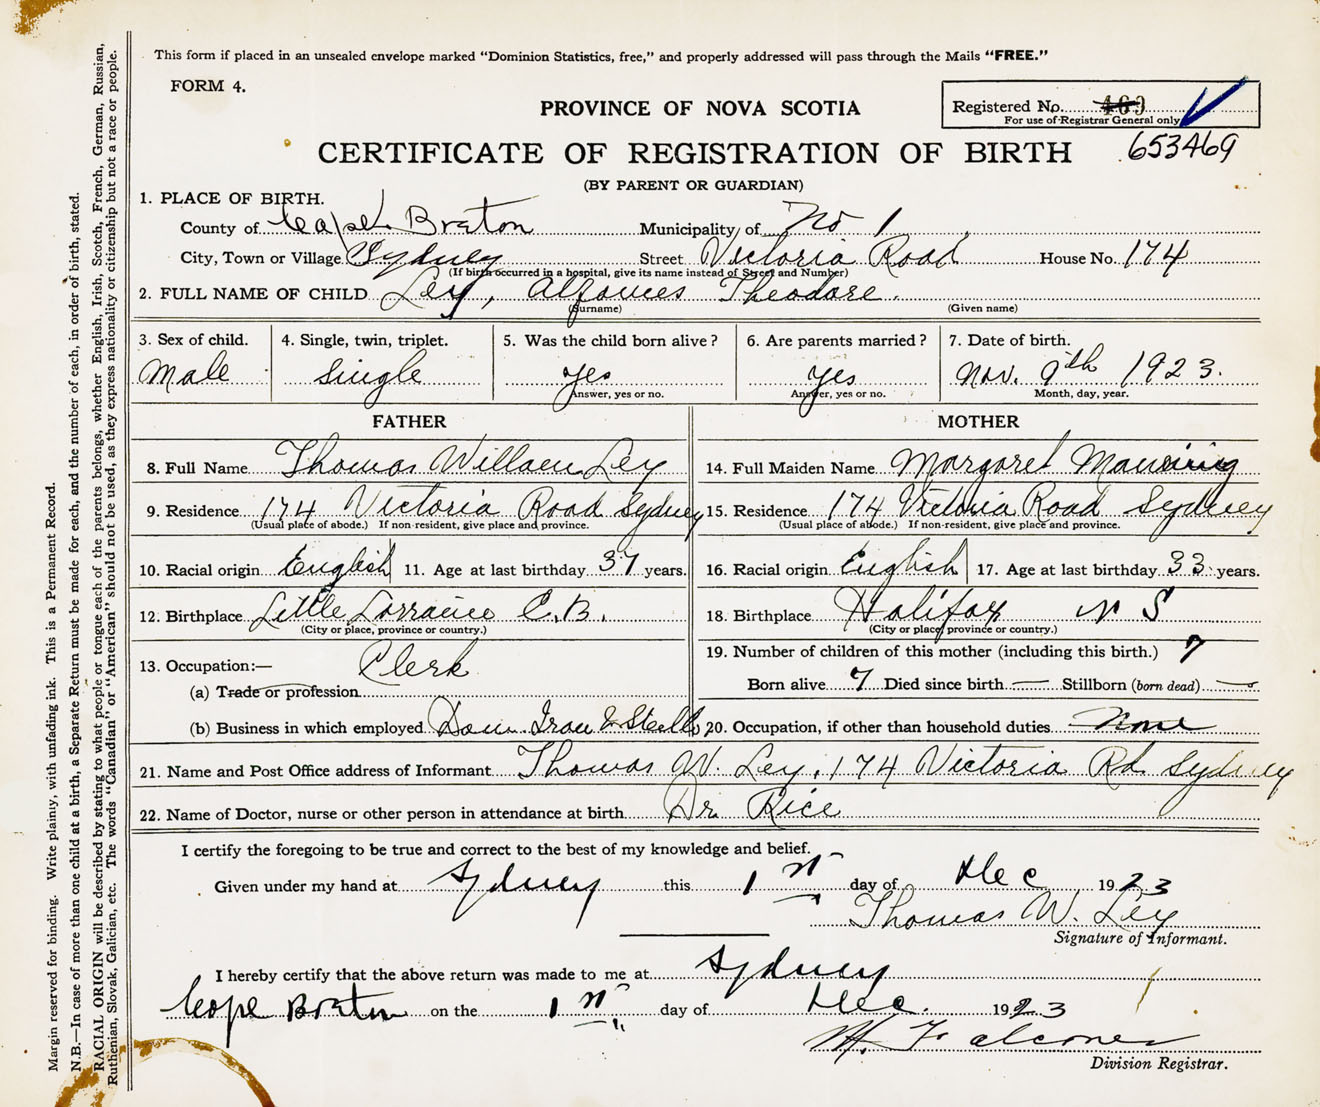 This form if placed in an unsealed envelope marked "Dominion Statistics, free," and properly addressed will pass through the Mails "FREE."
FORM 4.
PROVINCE OF NOVA SCOTIA
Registered No. 469
For use of Registrar General only
653469
CERTIFICATE OF REGISTRATION OF BIRTH
(BY PARENT OR GUARDIAN)
1. PLACE OF BIRTH.
County of Cape Breton Municipality of No 1
City, Town or Village Sydney Street Victoria Road House No. 174
(If birth occurred in a hospital, give its name instead of Street and Number)
2. FULL NAME OF CHILD Ley, Theodore.
(Surname) (Given name)
3. Sex of child. 4. Single, twin, triplet. 5. Was the child born alive? 6. Are parents married? 7. Date of birth.
Male Single yes yes Nov. 9th 1923.
Answer, yes or no. Answer, yes or no. Month, day, year.
FATHER MOTHER
8. Full Name Thomas Ley 14. Full Maiden Name Margaret
9. Residence 174 Victoria Road Sydney 15. Residence 174 Victoria Road Sydney
(Usual place of abode.) If non-resident, give place and province. (Usual place of abode.) If non-resident, give place and province.
10. Racial origin English 11. Age at last birthday 37 years. 16. Racial origin English 17. Age at last birthday 33 years.
12. Birthplace Little Lorraine C.B. 18. Birthplace Halifax N S
(City or place, province or country.) (City or place, province or country.)
13. Occupation:— Clerk 19. Number of children of this mother (including this birth.) 7
(a) Trade or profession Born alive 7 Died since birth — Stillborn (born dead) —
(b) Business in which employed Dom. Iron & Steel 20. Occupation, if other than household duties None
21. Name and Post Office address of Informant Thomas W. Ley, 174 Victoria Rd Sydney
22. Name of Doctor, nurse or other person in attendance at birth Dr. Rice
I certify the foregoing to be true and correct to the best of my knowledge and belief.
Given under my hand at Sydney this 1st day of Dec 1923
Thomas W. Ley
Signature of Informant.
I hereby certify that the above return was made to me at Sydney
Cape Breton on the 1st day of Dec. 1923
Division Registrar.
Margin reserved for binding. Write plainly, with unfading ink. This is a Permanent Record.
N.B.—In case of more than one child at a birth, a Separate Return must be made for each, and the number of each, in order of birth, stated.
RACIAL ORIGIN will be described by stating to what people or tongue each of the parents belongs, whether English, Irish, Scotch, French, German, Russian,
Ruthenian, Slovak, Galician, etc. The words "Canadian" or "American" should not be used, as they express nationality or citizenship but not a race or people.